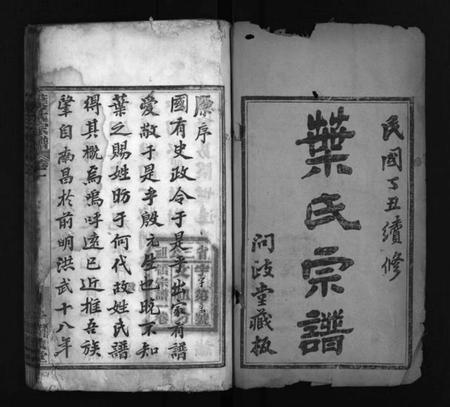 民國丁丑續修
葉氏宗譜
問政堂藏板
原序
國有史政令于是乎出家有譜
愛敬于是乎殷元生也晚不知
葉之賜姓昉于何代故姓氏譜
得其概焉嗚呼遠已近推吾族
肇自南昌於前明洪武十八年